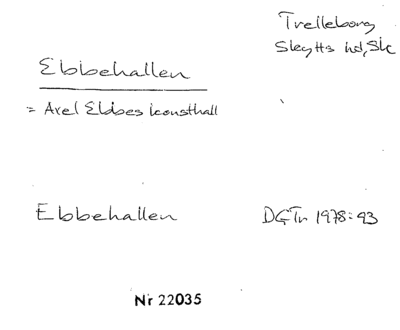 Trelleborg
Skytts hd, Sk
Ebbehallen
= Axel Ebbes konsthall
Ebbehallen
DGTr 1978:93
Nr 22035